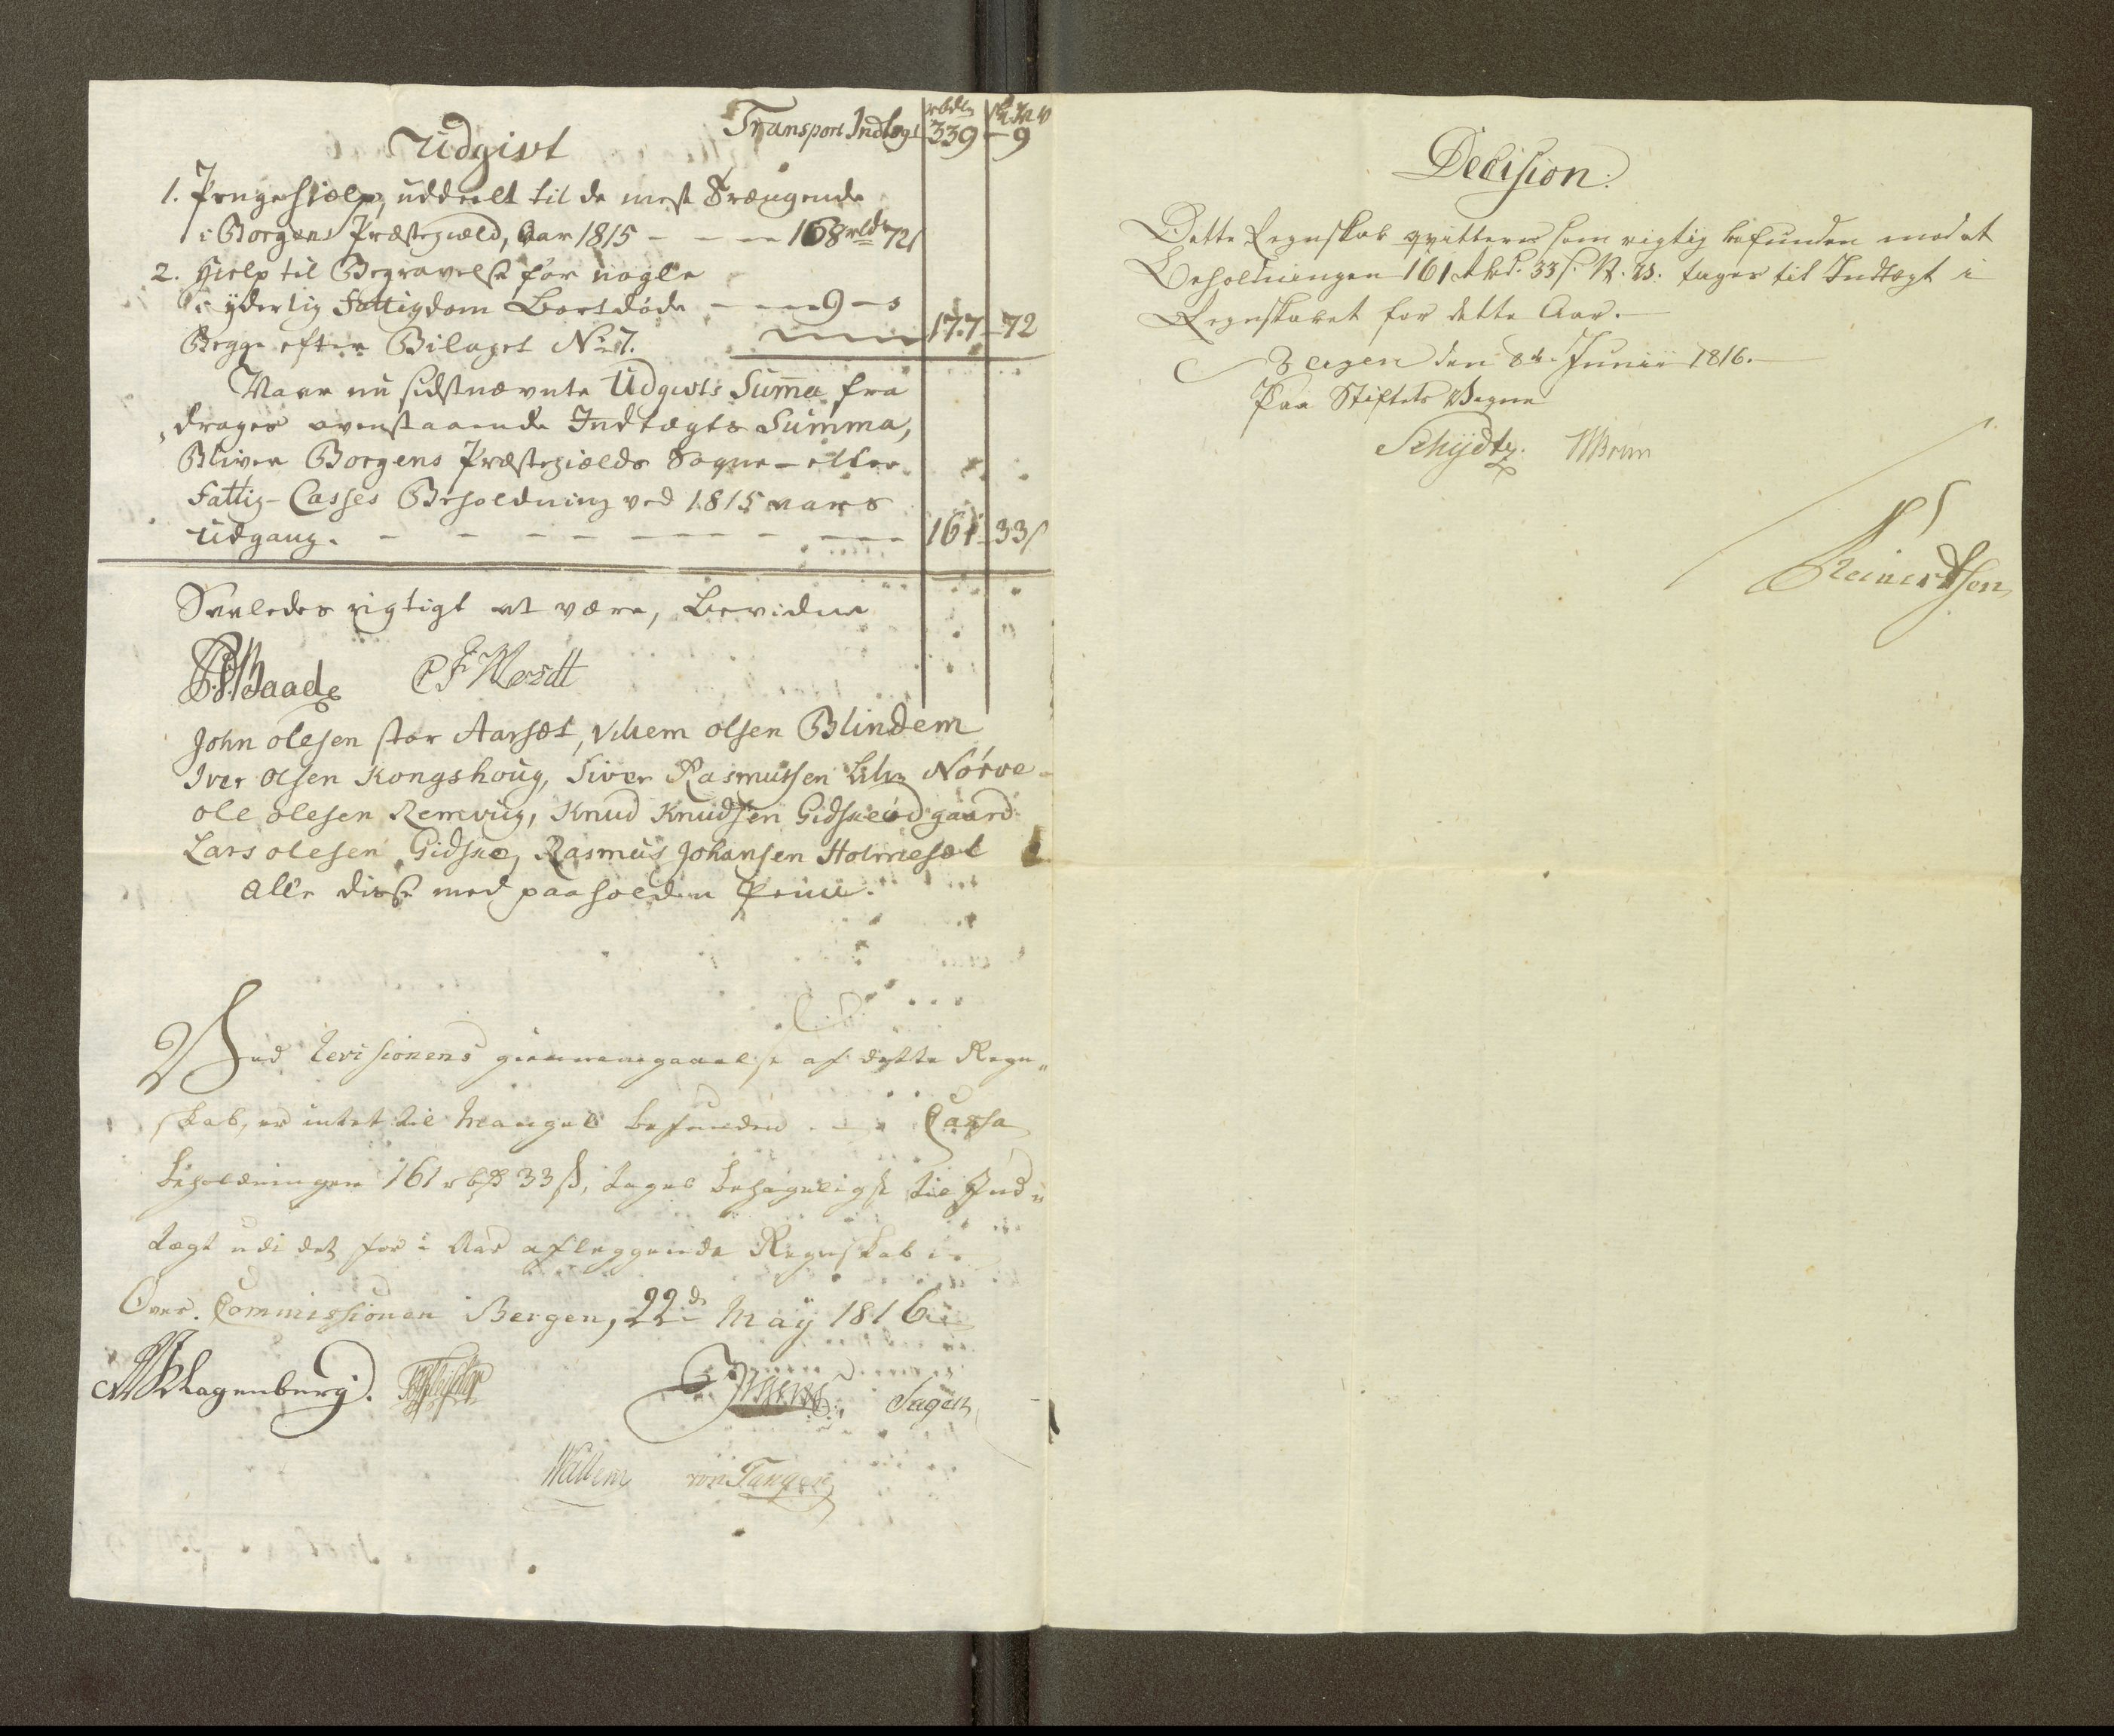 rbdlr
Transport Indtægt 339 - 9
Udgivt
1. Pengehielp, uddeelt til de mest Trængende
i Borgens Præstegiæld, Aar 1815 - - - 168 rbdr 72 s
2. Hielp til Begravelse for nogle
i yderlig Fattigdom Bortdøde - - - 9 - s
Begge efter Bilaget No 7. 177 - 72
Naar nu sidstnævnte Udgivts Summa fra
drages ovenstaaende Indtægts Summa,
Bliver Borgens Præstegiælds Sogne- eller
Fattig-Casses Beholdning ved 1815 aars
Udgang. - - - - - - - 161 - 33 s
Saaledes rigtigt at være, bevidne
Baade
John olesen stor Aarsæt, Vilhem olsen Blindem
Iver olsen Kongshoug, Siver Rasmussen Nørve
ole olesen Remvüg, Knud Knudsen Gidskeødgaard
Lars olesen Gidske, Rasmus Johansen Holmesæt
alle disse med paaholden Penn.
Ved Revisionens giennemgaaelse af dette Regn„
skab, er intet til Mangel befunden. - Cassa
beholdningen 161 rbd 33 s, tages behageligst til Ind„
tægt udi det for i Aar aflæggende Regnskab.
Over. Commissionen Bergen, 22de Maÿ 1816
Klagenberg.
Irgens Sagen
Wallem von Tangen
Decision:
Dette Regnskab qvitteres som rigtig befunden mod at
Beholdningen 161 rbd. 33 s. N. V. tages til Indtægt i
Regnskabet for dette Aar.
Bergen den 8de Junii 1816.
Paa Stiftets Vegne
Schÿdtz. Brun
Reinertsen